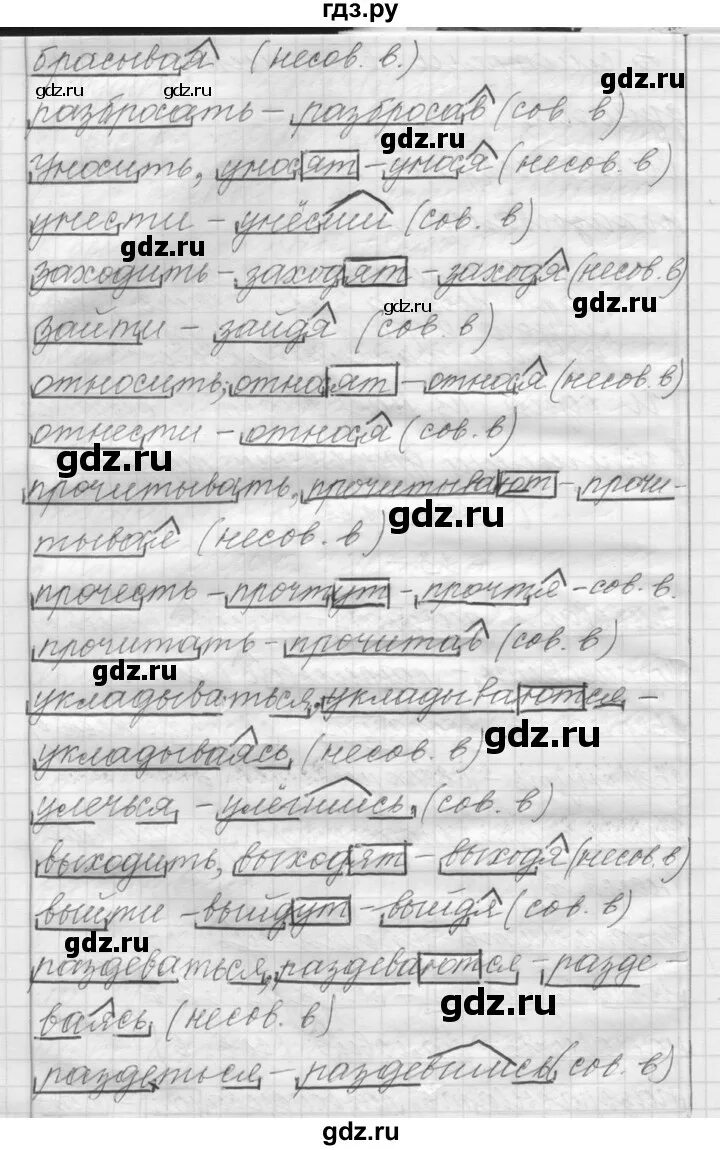 гдз.ру
брасывая (несов. в.)
gdz.ru gdz.ru gdz.ru
разбросать – разбросав (сов. в)
gdz.ru
Уносить, уносят – унося (несов. в)
унести – унёсши (сов. в)
gdz.ru
заходить – заходят – заходя (несов. в)
gdz.ru gdz.ru
зайти – зайдя (сов. в)
относить, отноят – относя (несов. в)
отнести – относя (сов. в)
gdz.ru
прочитывать, прочитывают – прочи-
gdz.ru
тывая (несов. в)
прочесть – прочтут – прочтя – сов. в.
прочитать – прочитав (сов. в)
gdz.ru
укладываться, укладываются –
gdz.ru
укладываясь (несов. в)
улечься – улёгшись, (сов. в)
gdz.ru
выходить, выходят – выходя (несов. в)
выйти – выйдут – выйдя (сов. в)
gdz.ru
раздеваться, раздеваются – разде-
gdz.ru
ваясь (несов. в)
раздеться – раздевшись (сов. в)
gdz.ru